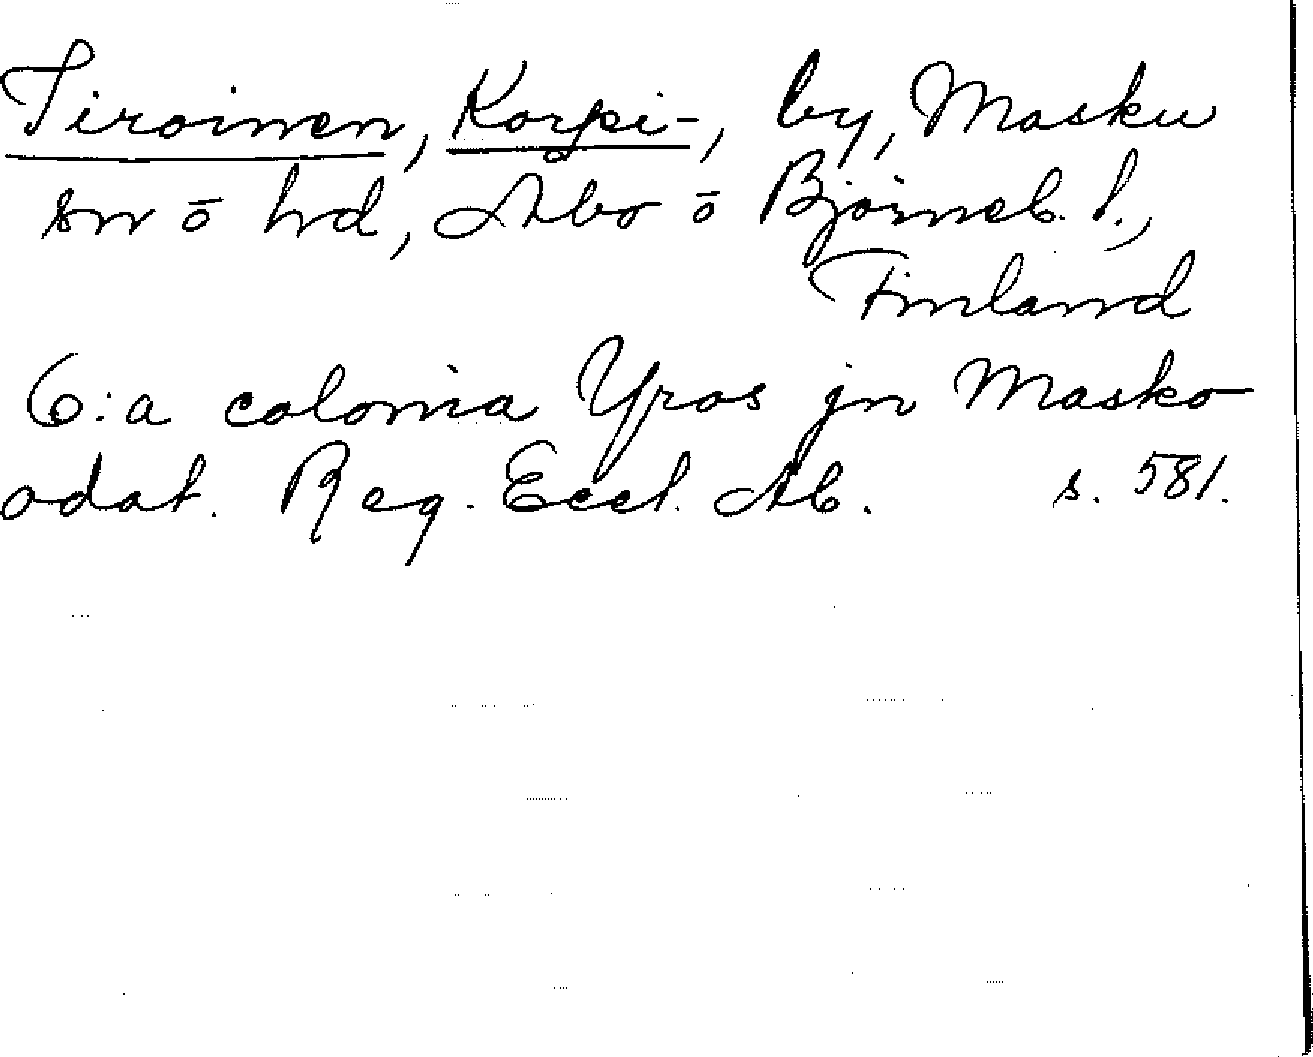 Tiroinen, Korpi-, by, Masku
sn ō hd, Åbo ō Björneb. l.,
Finland
6:a colonia Yros jn Masko
odat. Reg. Eccl. Ab. s. 581.